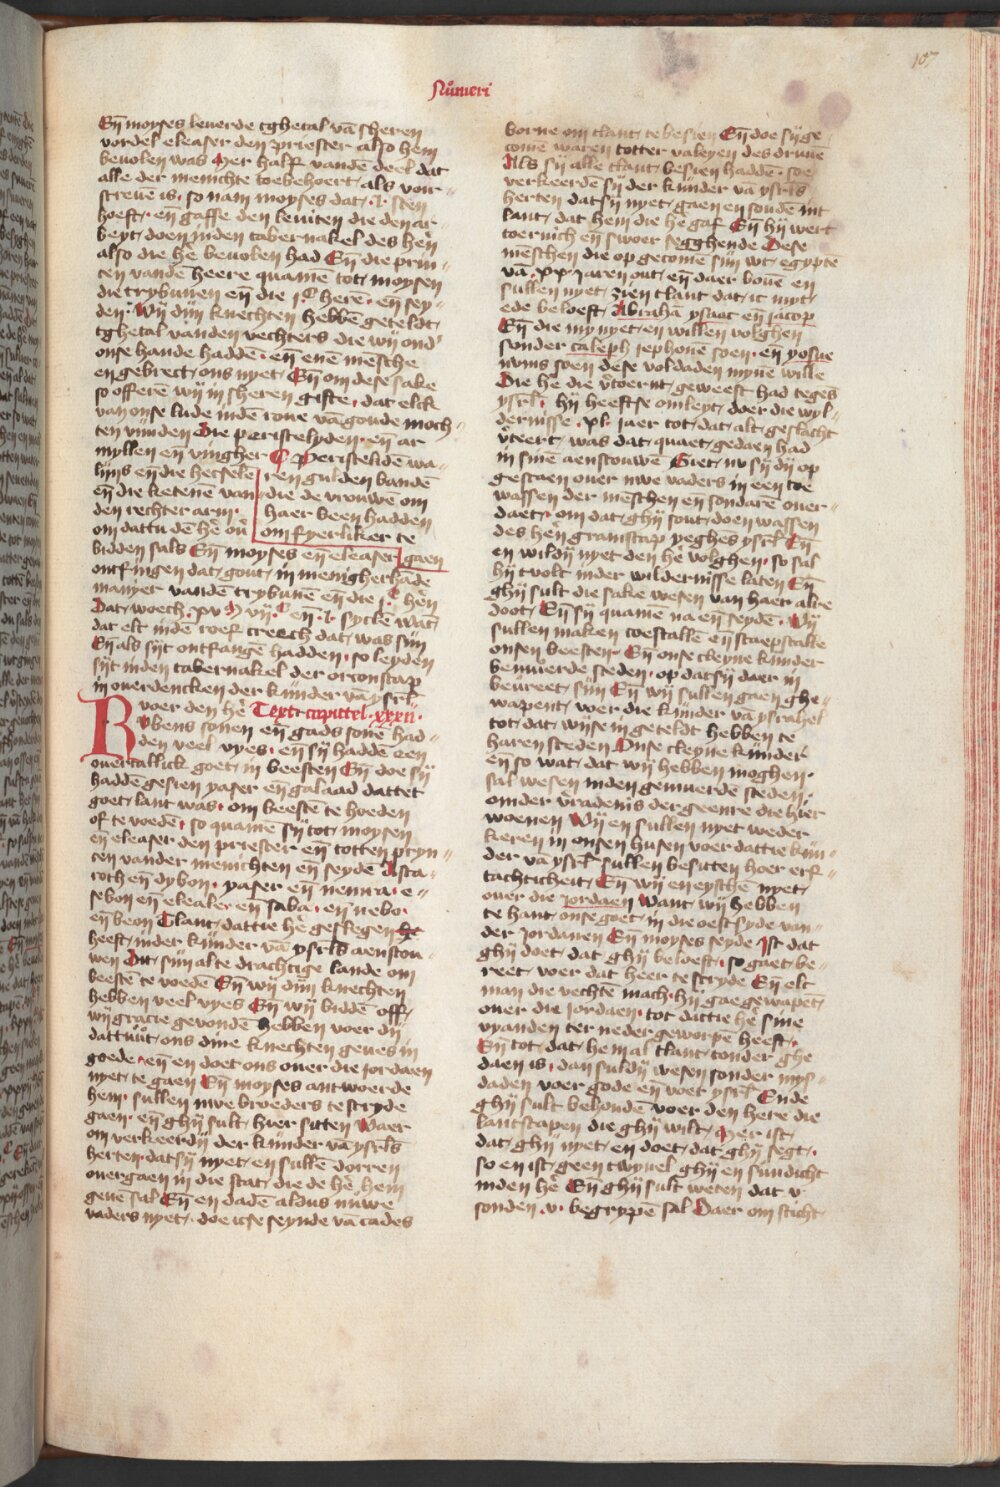 107
Nűmeri
Eñ moyses leuerde tghetal vā sheren
vordel eleaser den priester also hem
beuolen was Mer half vandē deel dat
alle der menichte toebehoert, als voir
screuē is, so nam moyses dat .l. sten
hoeft, eñ gaffe den leuiten die den ar
beyt doen inden tabernakel des hēn
also die hē beuolen had Eñ die prin
cen vandē heere quamē tot moysen
die trybunen eñ die .jC here, eñ sey
den Wij dijn knechten hebbē geteldt
tghetal vanden vechters die wij ond'
onse hande haddē, eñ enē mēsche
en gebrect ons nyet Eñ om dese sake
so offerē wij in sheren gifte, dat elck
van onse lude indē roue vā goude moch
ten vinden Die peristelyden eñ ar
myllen eñ vingher C Peristelidē wa
lijns eñ die hecsele ren gulden bandē
eñ die ketenē van die de vrouwē om
den rechter arm haer been hadden
om dattu dē hē ou' om fyerliker te
bidden suls Eñ moyses eñ eleaser gaen
ontfingen dat gout in menigherhāde
manyer vandē trybunē eñ die .jC hēn
Dat woech .xv. M vijC eñ .l. syckē wāt
dat elt indē roef creech dat was sijn
Eñ als sijt ontfangē hadden, so leyden
sijt inden tabernakel der orconscap
in ouerdencken der kinder vā ysrl
voer den hē Text capittel .xxxij.
Rubens sonen eñ gads sonē had
den veel vyes, eñ sij haddē een
ouertallick goet in beesten Eñ doe sij
haddē gesien yaser eñ galaad dattet
goet lant was, om beestē te hoeden
of te voedē, so quamē sij tot moysen
eñ eleaser den priester eñ totten pryn
cen vander menichten eñ seydē Asta
roth eñ dybon, yaser eñ nemra, e
sebon eñ elealer eñ saba, eñ nebo
eñ beon Tlant dattie hē geslegen he
heeft, inder kinder vā ysrls aenscou
wen Dit sijn al te drachtige lande om
beestē te voedē Eñ wij dijn knechten
hebben veel vyes Eñ wij biddē offt
wij gracie geuondē hebben voer dij
dattuut ons dine knechten geues in
goede, eñ en doet ons ouer die jordaen
nyet te gaen Eñ moyses antwoerde
hem, sullen uwe broeders te stryde
gaen, eñ ghij sult hier sitten Waer
om verkeerdij der kinder vā ysrls
herten, datsij nyet en sullē dorren
ouergaen in die stat, die de hē hem
geuē sal Eñ en dadē aldus nuwe
vaders nyet, doe icse seynde vā cades
borne om tlant te besien Eñ doe sij ge
comē waren totter valeyen des druuē
Als sij alle tlant besien haddē, soe
verkeerdē sij der kinder vā ysrls
herten datsij nyet gaen en soudē int
lant, dat hem die hē gaf Eñ hij wert
toernich eñ swoer segghende Dese
mēschen die op gecomē sijn wt egyptē
vā .xx. jaren out, eñ daer bouē en
sullen nyet zien tlant dat ic myt
ede beloeft Abrahā ysaac eñ jacop
Eñ die my nyet en willen volghen
sonder caleph jephonē soen, eñ yosue
nuns soen dese voldaden mynē wille
Die hē die v'toernt geweest had tegēs
ysrl, hij heeftse omleyt doer die wyl
dernisse .xl. jaer tot dat alt geslacht
v'teert was dat quaet gedaen had
in sinē aenscouwē Siet nv sij dij op
gestaen ouer uwe vaders in een toe
wassen der mēschen eñ sondarē ouer
daet, om dat ghij sout doen wassen
des hēn gramscap yeghes ysrl Eñ
en wildij nyet den hē volghen, so sal
hij tvolt inder wildernisse laten Eñ
ghij sult die sake wesen van haer alre
doot Eñ sij quamē na eñ seydē Wij
sullen maken coestallē eñ scaepstalle
onsen beesten Eñ onse cleyne kinder
bemuerde steden, op datsij daer in
bewreet sijn Eñ wij sullen gaen ghe
wapent voer die kinder vā ysrahel
tot dat wijse in geteldt hebben te
haren steden Onse cleyne kinder
eñ so wat dat wij hebben moghen,
sal wesen inden gemuerde steden,
omder v'radenis der geenre die hier
woenen Wij en sullen nyet weder
keren in onsen husen voer dattie kin
der vā ysrl sullen besitten hoer erf
tachticheit Eñ wij en eysschē nyet
ouer die jordaen Want wij hebben
te hant onse goet in die oestsyde van
der jordanen Eñ moyses seyde Ist dat
ghij doet, dat ghij beloeft, so gaet be
reet voer dat heer te stryde Eñ elt
man die vechtē mach, hij gae gewapēt
ouer die jordaen, tot dattie hē sine
vyanden ter neder geworpē heeft,
Eñ tot dat hem al tlant tonder ghe
daen is, dan suldij wesen sonder mys
daden voer gode eñ voer ysrl Ende
ghij sult behoudē voer den here die
lantscapen die ghij wilt, Mer ist
dat ghij nyet en doet dat ghij segt,
so en ist geen twyuel ghij en sundicht
inden hē Eñ ghij sult weten dat v
sonden .v. begrypē sal Daer om sticht